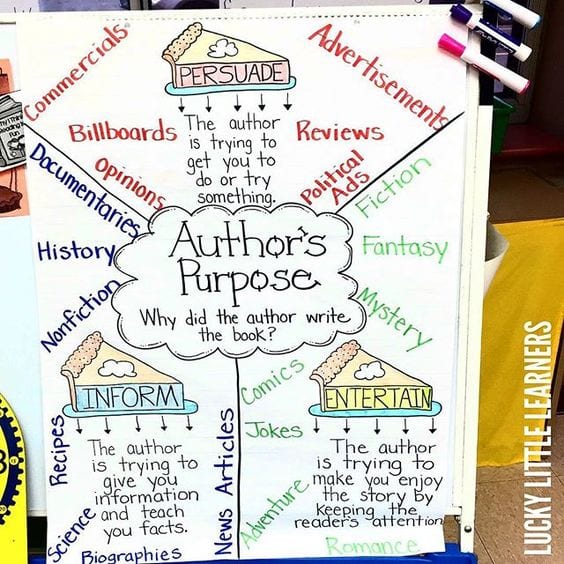 Commercials
Advertisements
PERSUADE
Billboards
Opinions
Reviews
Political
Ads
The author
is trying to
get you to
do or try
something.
Author's
Purpose
Why did the author write
the book?
Documentaries
History
Nonfiction
INFORM
Recipes
Science
Biographies
News Articles
The author
is trying to
give you
information
and teach
you facts.
Fiction
Fantasy
Mystery
ENTERTAIN
Comics
Jokes
Adventure
Romance
The author
is trying to
make you enjoy
the story by
keeping the
reader's attention
LUCKY LITTLE LEARNERS